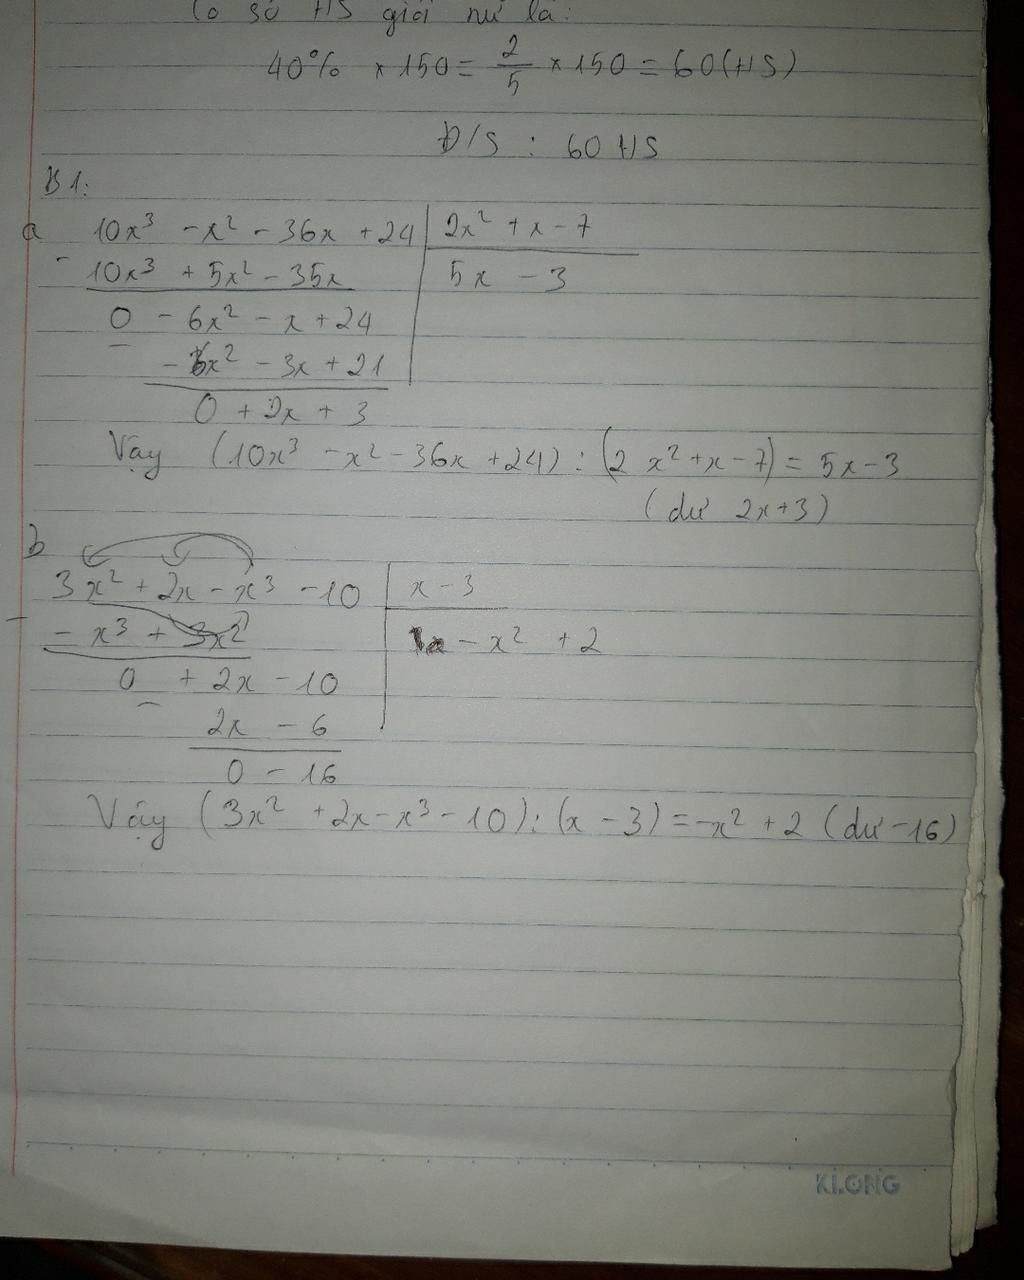 Có số HS giỏi nữ là:
40% × 150 = 2/5 × 150 = 60 (HS)
Đ/S : 60 HS
B1:
a 10x³ - x² - 36x + 24 | 2x² + x - 7
- 10x³ + 5x² - 35x | 5x - 3
0 - 6x² - x + 24
- - 6x² - 3x + 21
0 + 2x + 3
Vậy (10x³ - x² - 36x + 24) : (2x² + x - 7) = 5x - 3
(dư 2x + 3)
b
3x² + 2x - x³ - 10 | x - 3
- - x³ + 3x² | - x² + 2
0 + 2x - 10
- 2x - 6
0 - 16
Vậy (3x² + 2x - x³ - 10) : (x - 3) = -x² + 2 (dư -16)
KLONG